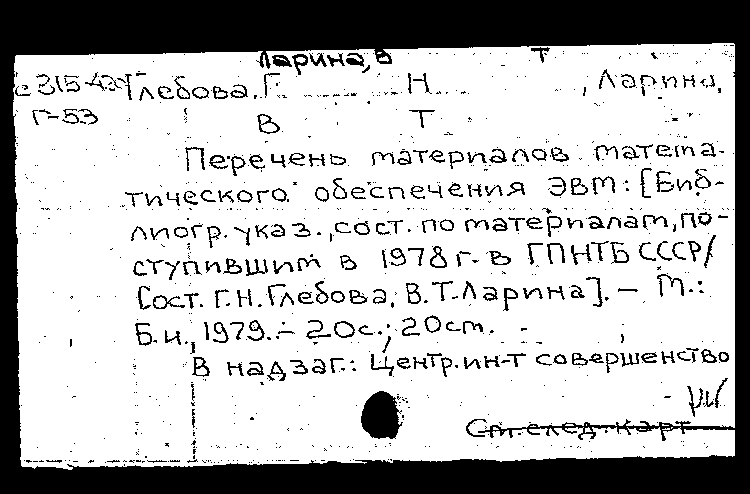 Ларина, В Т
с 315-424 Глебова, Г. Н , Ларина,
Г-53 В Т
Перечень материалов матема-
тического обеспечения ЭВМ: [Биб-
лиогр. указ., сост. по материалам, по-
ступившим в 1978 г. в ГПНТБ СССР/
Сост. Г.Н. Глебова, В.Т. Ларина]. — М.:
Б.и., 1979. - 20с.; 20см.
В надзаг.: Центр. ин-т совершенство
См. след. карт